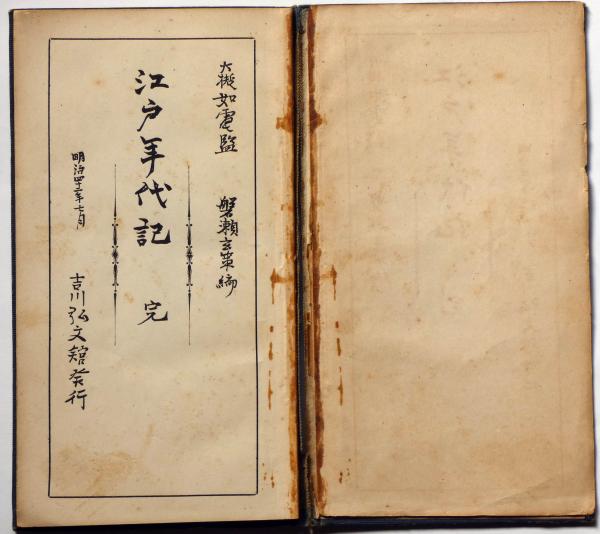 大槻如電監　磐瀬玄策編
江戸年代記　完
明治四十二年七月
吉川弘文館発行